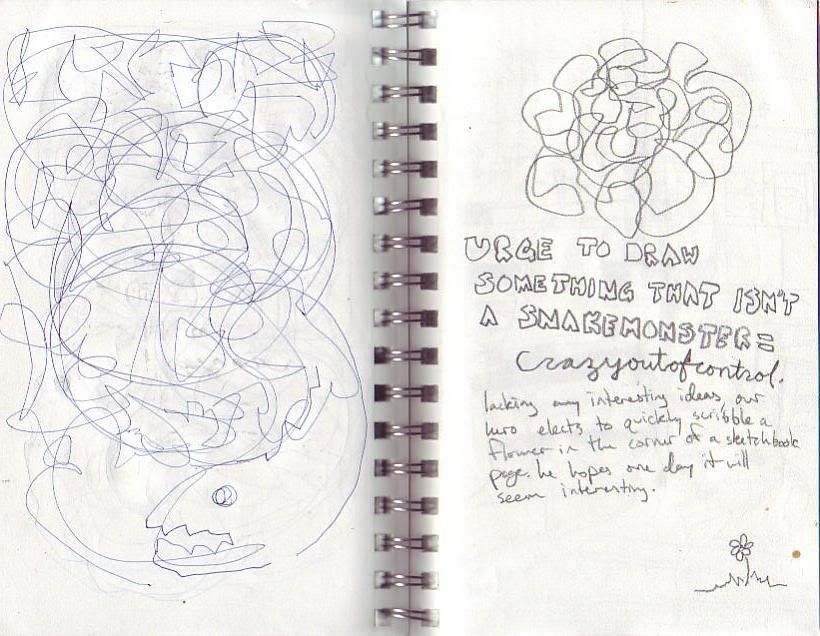 URGE TO DRAW
SOMETHING THAT ISN'T
A SNAKEMONSTER =
Crazyoutofcontrol.
lacking any interesting ideas, our
hero elects to quickly scribble a
flower in the corner of a sketchbook
page. he hopes one day it will
seem interesting.